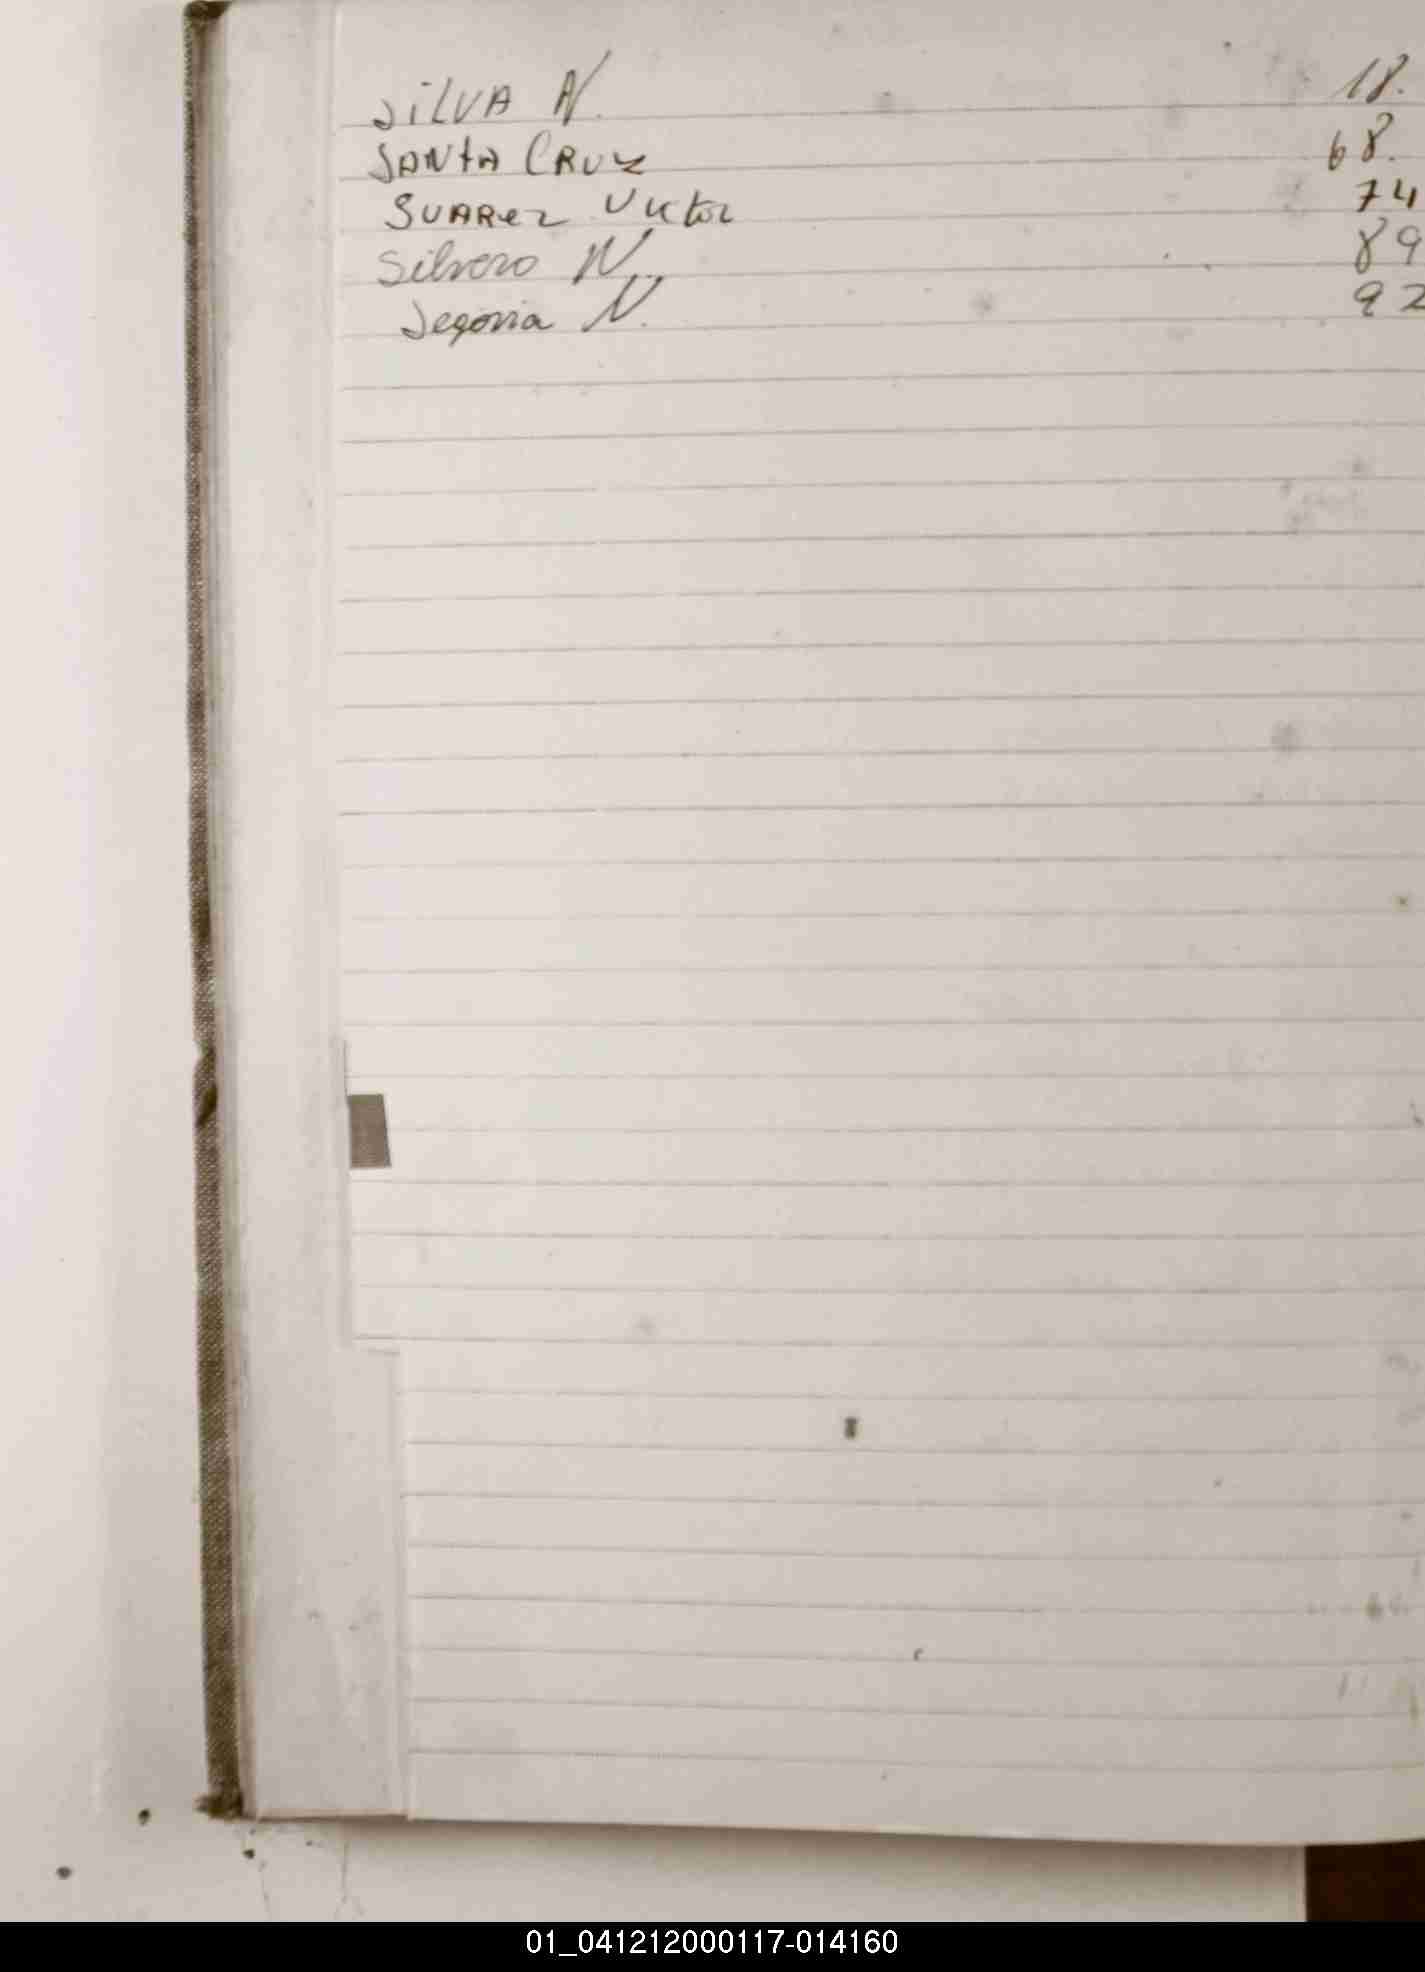 SILVA N. 18.
SANTA CRUZ 68.
SUAREZ Victor 74
Silvero N. 89
Segovia N. 92
01_041212000117-014160